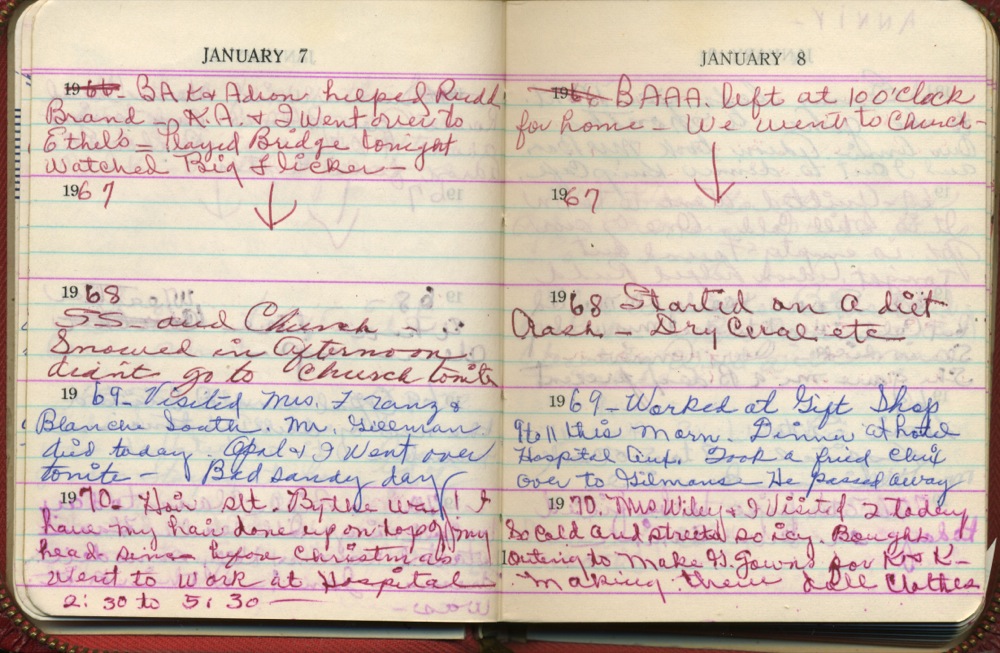 JANUARY 7
1966- BAK & Adron helped Rudd
Brand - K.A. & I Went over to
Ethel's - Played Bridge tonight
Watched Big Slicker -
1967
1968
SS- and Church -
Snowed in afternoon
didnt go to Church tonite
1969- Visited Mrs. Franz &
Blanche South. Mr. Gillman
died today. Opal & I Went over
tonite - Bad sandy day
1970- Hair set. By the way I
have my hair done up on top of my
head since before Christmas
Went to work at Hospital
2:30 to 5:30 -
JANUARY 8
1968 BAAA. left at 10 o'clock
for home - We went to Church -
1967
1968 Started on a diet
Crash - Dry Ceral etc
1969- Worked at Gift Shop
9 to 11 this morn. Dinner at hotel
Hospital Aux. Took a fried Chix
over to Gilmans - He passed away
1970. Mrs Wiley & I Visited 2 today
So cold and streets so icy. Bought
outing to Make N. Gowns for K & K -
Making them doll clothes